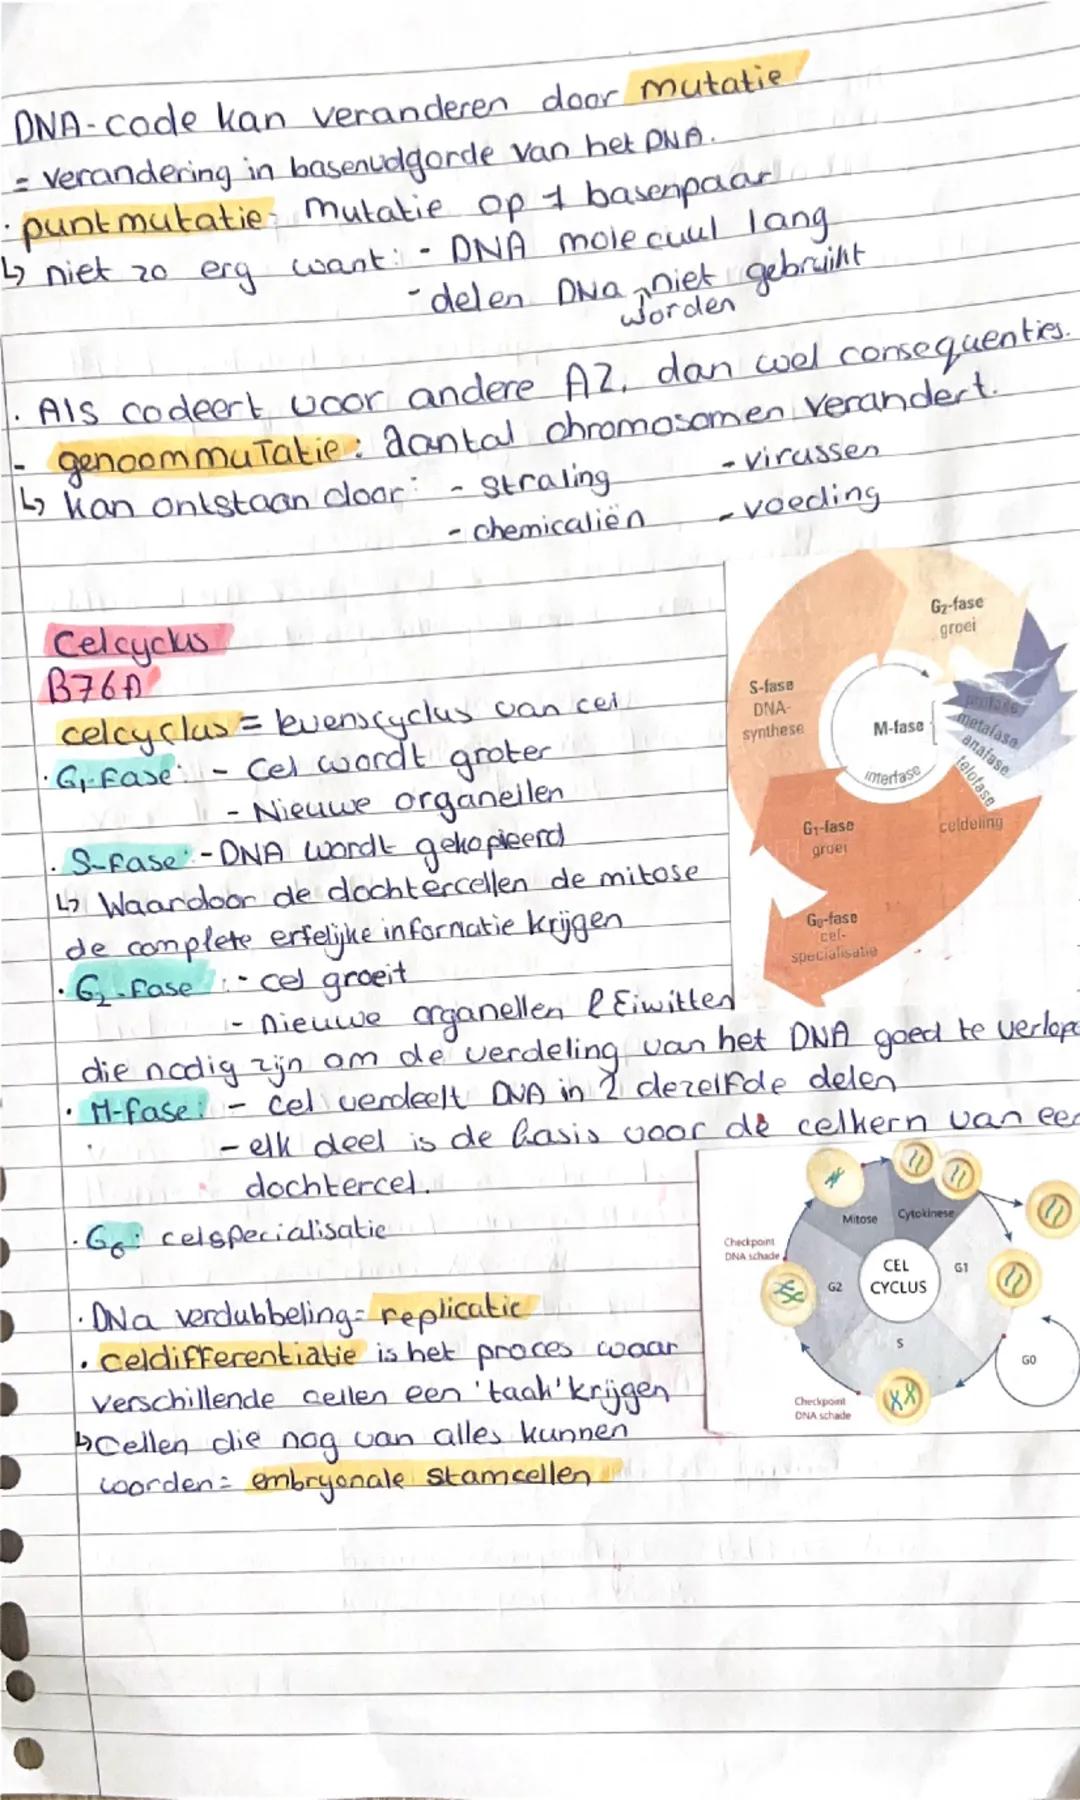 DNA-code kan veranderen door mutatie
= verandering in basenvolgorde van het DNA.
· puntmutatie: mutatie op 1 basenpaar
↳ niet zo erg want: - DNA molecuul lang
- delen DNA niet gebruikt
worden
· Als codeert voor andere AZ, dan wel consequenties.
- genoommutatie: aantal chromosomen verandert.
↳ kan ontstaan door: - straling - virussen
- chemicaliën - voeding
Celcyclus
B76A
celcyclus = levenscyclus van cel
· G₁-fase: - Cel wordt groter
- Nieuwe organellen
· S-fase: - DNA wordt gekopieerd
↳ Waardoor de dochtercellen de mitose
de complete erfelijke informatie krijgen
· G₂-fase: - cel groeit
- nieuwe organellen & Eiwitten
die nodig zijn om de verdeling van het DNA goed te verlope
· M-fase: - cel verdeelt DNA in 2 dezelfde delen
- elk deel is de basis voor de celkern van een
dochtercel.
· G₀: celspecialisatie
· DNA verdubbeling = replicatie
· celdifferentiatie is het proces waar
verschillende cellen een 'taak' krijgen
↳ Cellen die nog van alles kunnen
worden = embryonale stamcellen
G₂-fase
groei
S-fase
DNA-
synthese
M-fase
profase
metafase
anafase
telofase
interfase
G₁-fase
groei
celdeling
G₀-fase
cel-
specialisatie
Mitose
Cytokinese
Checkpoint
DNA schade
CEL
CYCLUS
G1
G2
S
G0
Checkpoint
DNA schade